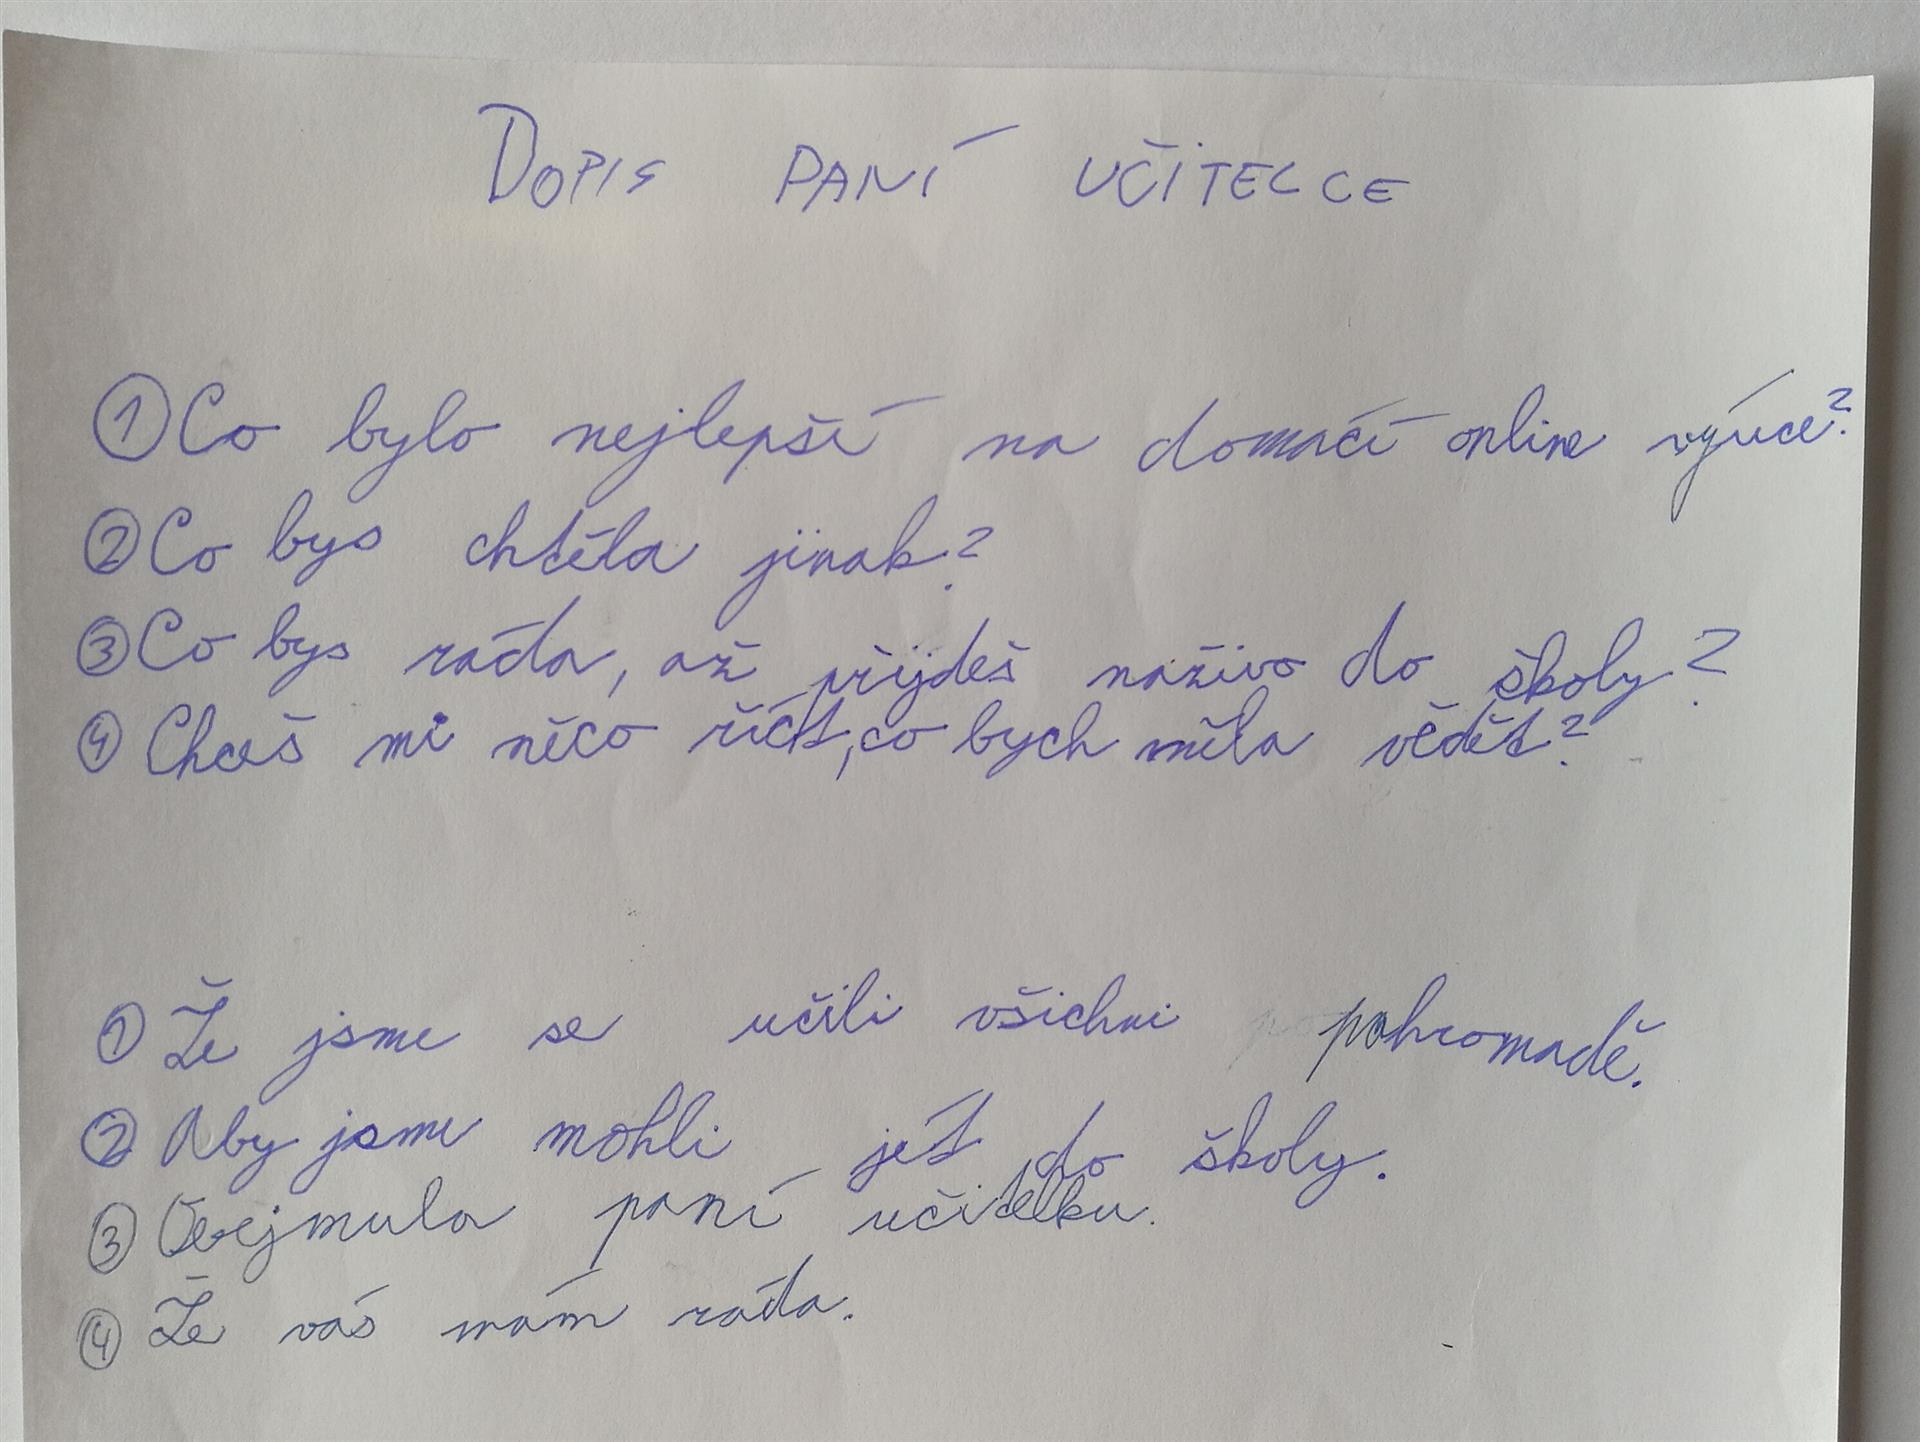 DOPIS PANÍ UČITELCE
① Co bylo nejlepší na domací online výuce?
② Co bys chtěla jinak?
③ Co bys ráda, až přijdeš naživo do školy?
④ Chceš mi něco říct, co bych měla vědět?
① Že jsme se učili všichni pohromadě.
② Aby jsme mohli jét do školy.
③ Obejmula paní učitelku.
④ Že vás mám ráda.